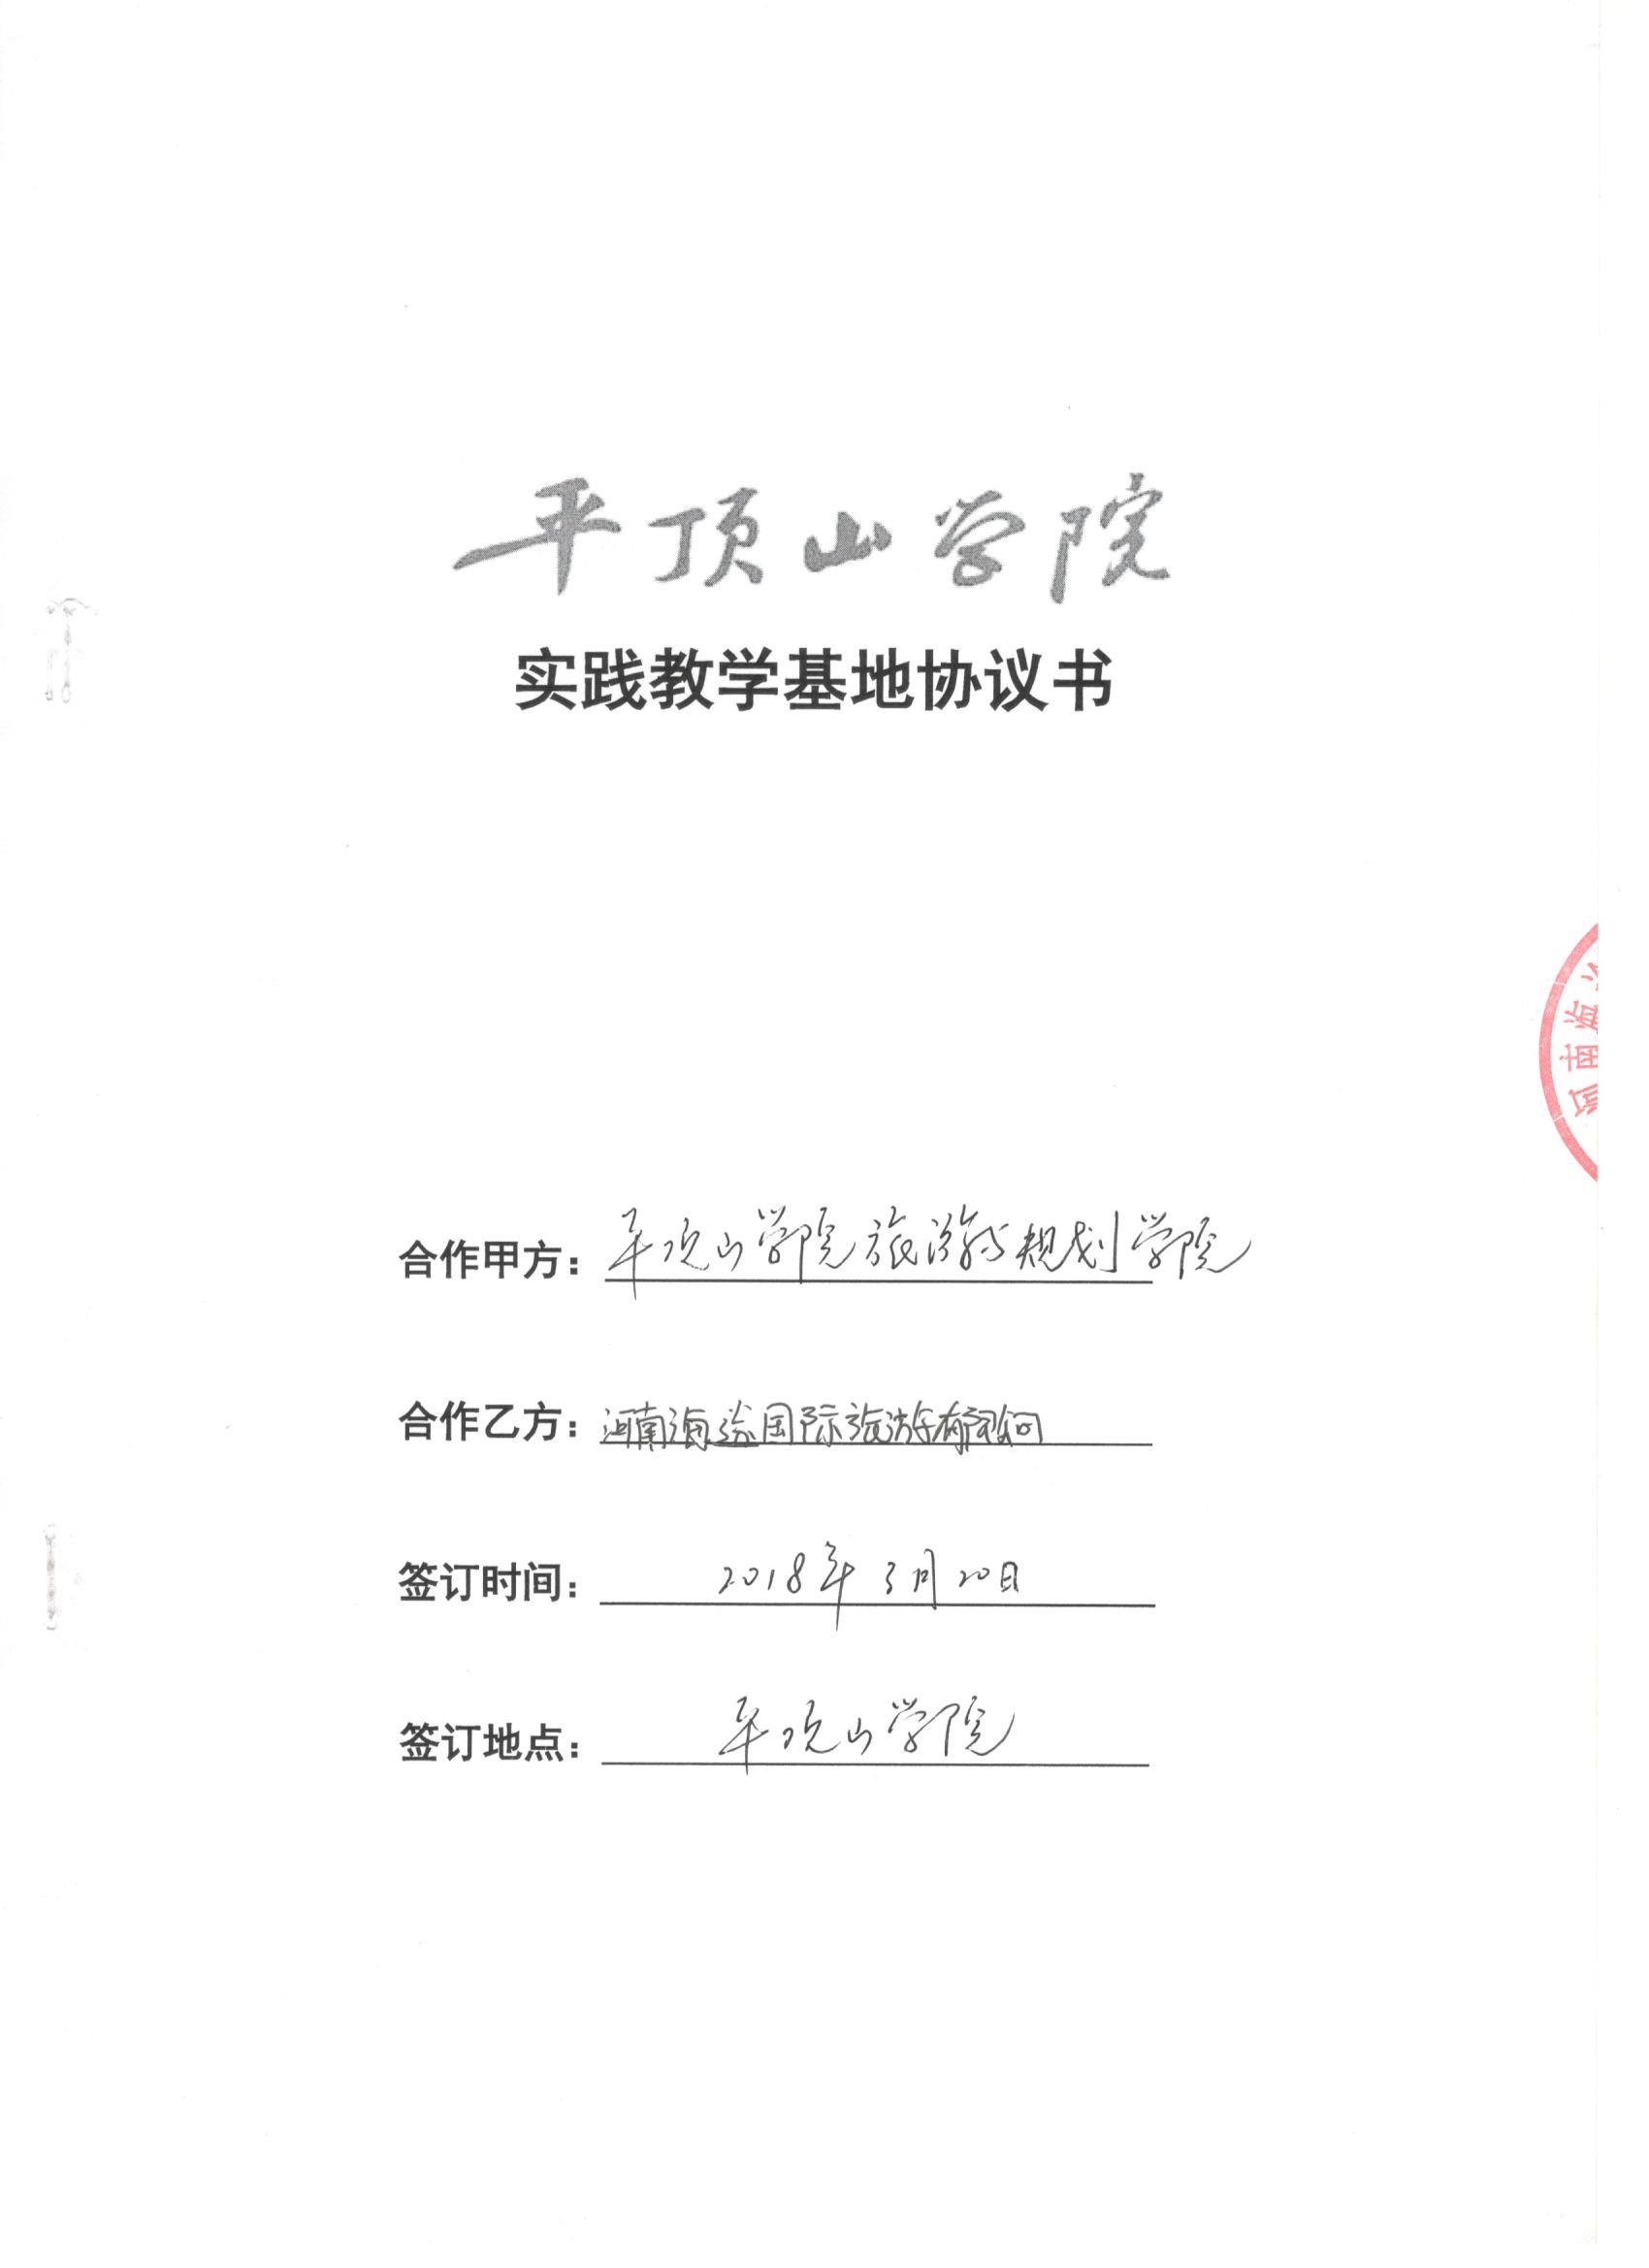 平顶山学院
实践教学基地协议书
河南海
合作甲方：平顶山学院旅游与规划学院
合作乙方：河南海途国际旅游有限公司
签订时间：2018年3月20日
签订地点：平顶山学院